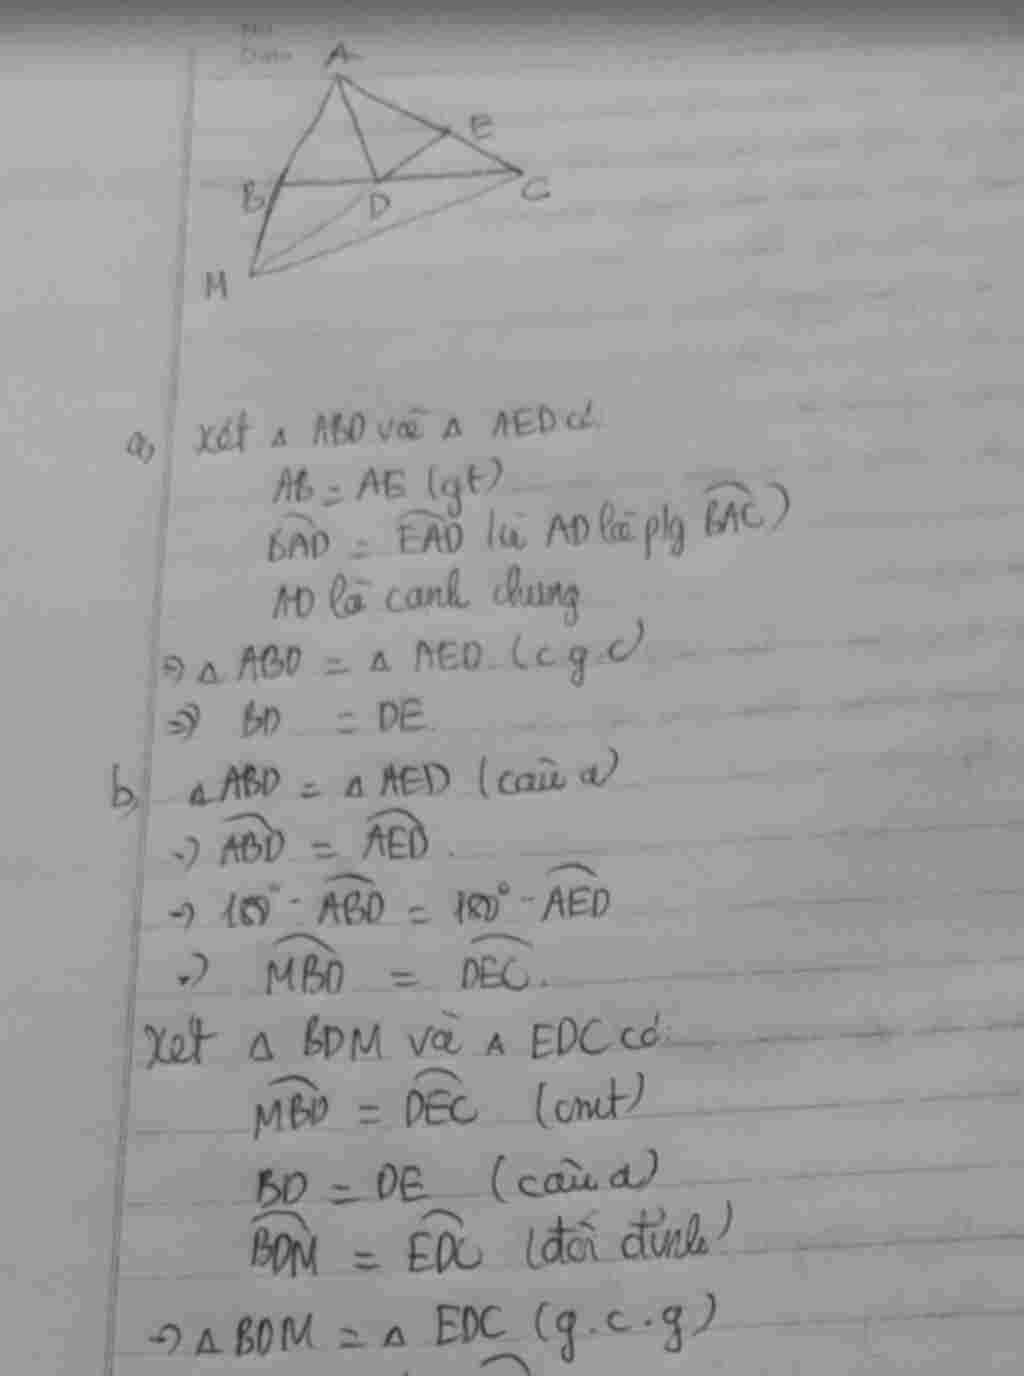 No
Date
A
E
B
D
C
M
a, Xét Δ ABD và Δ AED có
AB = AE (gt)
BAD = EAD (vì AD là p/g BAC)
AD là cạnh chung
=> Δ ABD = Δ AED (c g c)
=> BD = DE
b, Δ ABD = Δ AED (câu a)
=> ABD = AED.
=> 180° - ABD = 180° - AED
=> MBD = DEC.
Xét Δ BDM và Δ EDC có
MBD = DEC (cmt)
BD = DE (câu a)
BDM = EDC (đối đỉnh)
=> Δ BDM = Δ EDC (g.c.g)